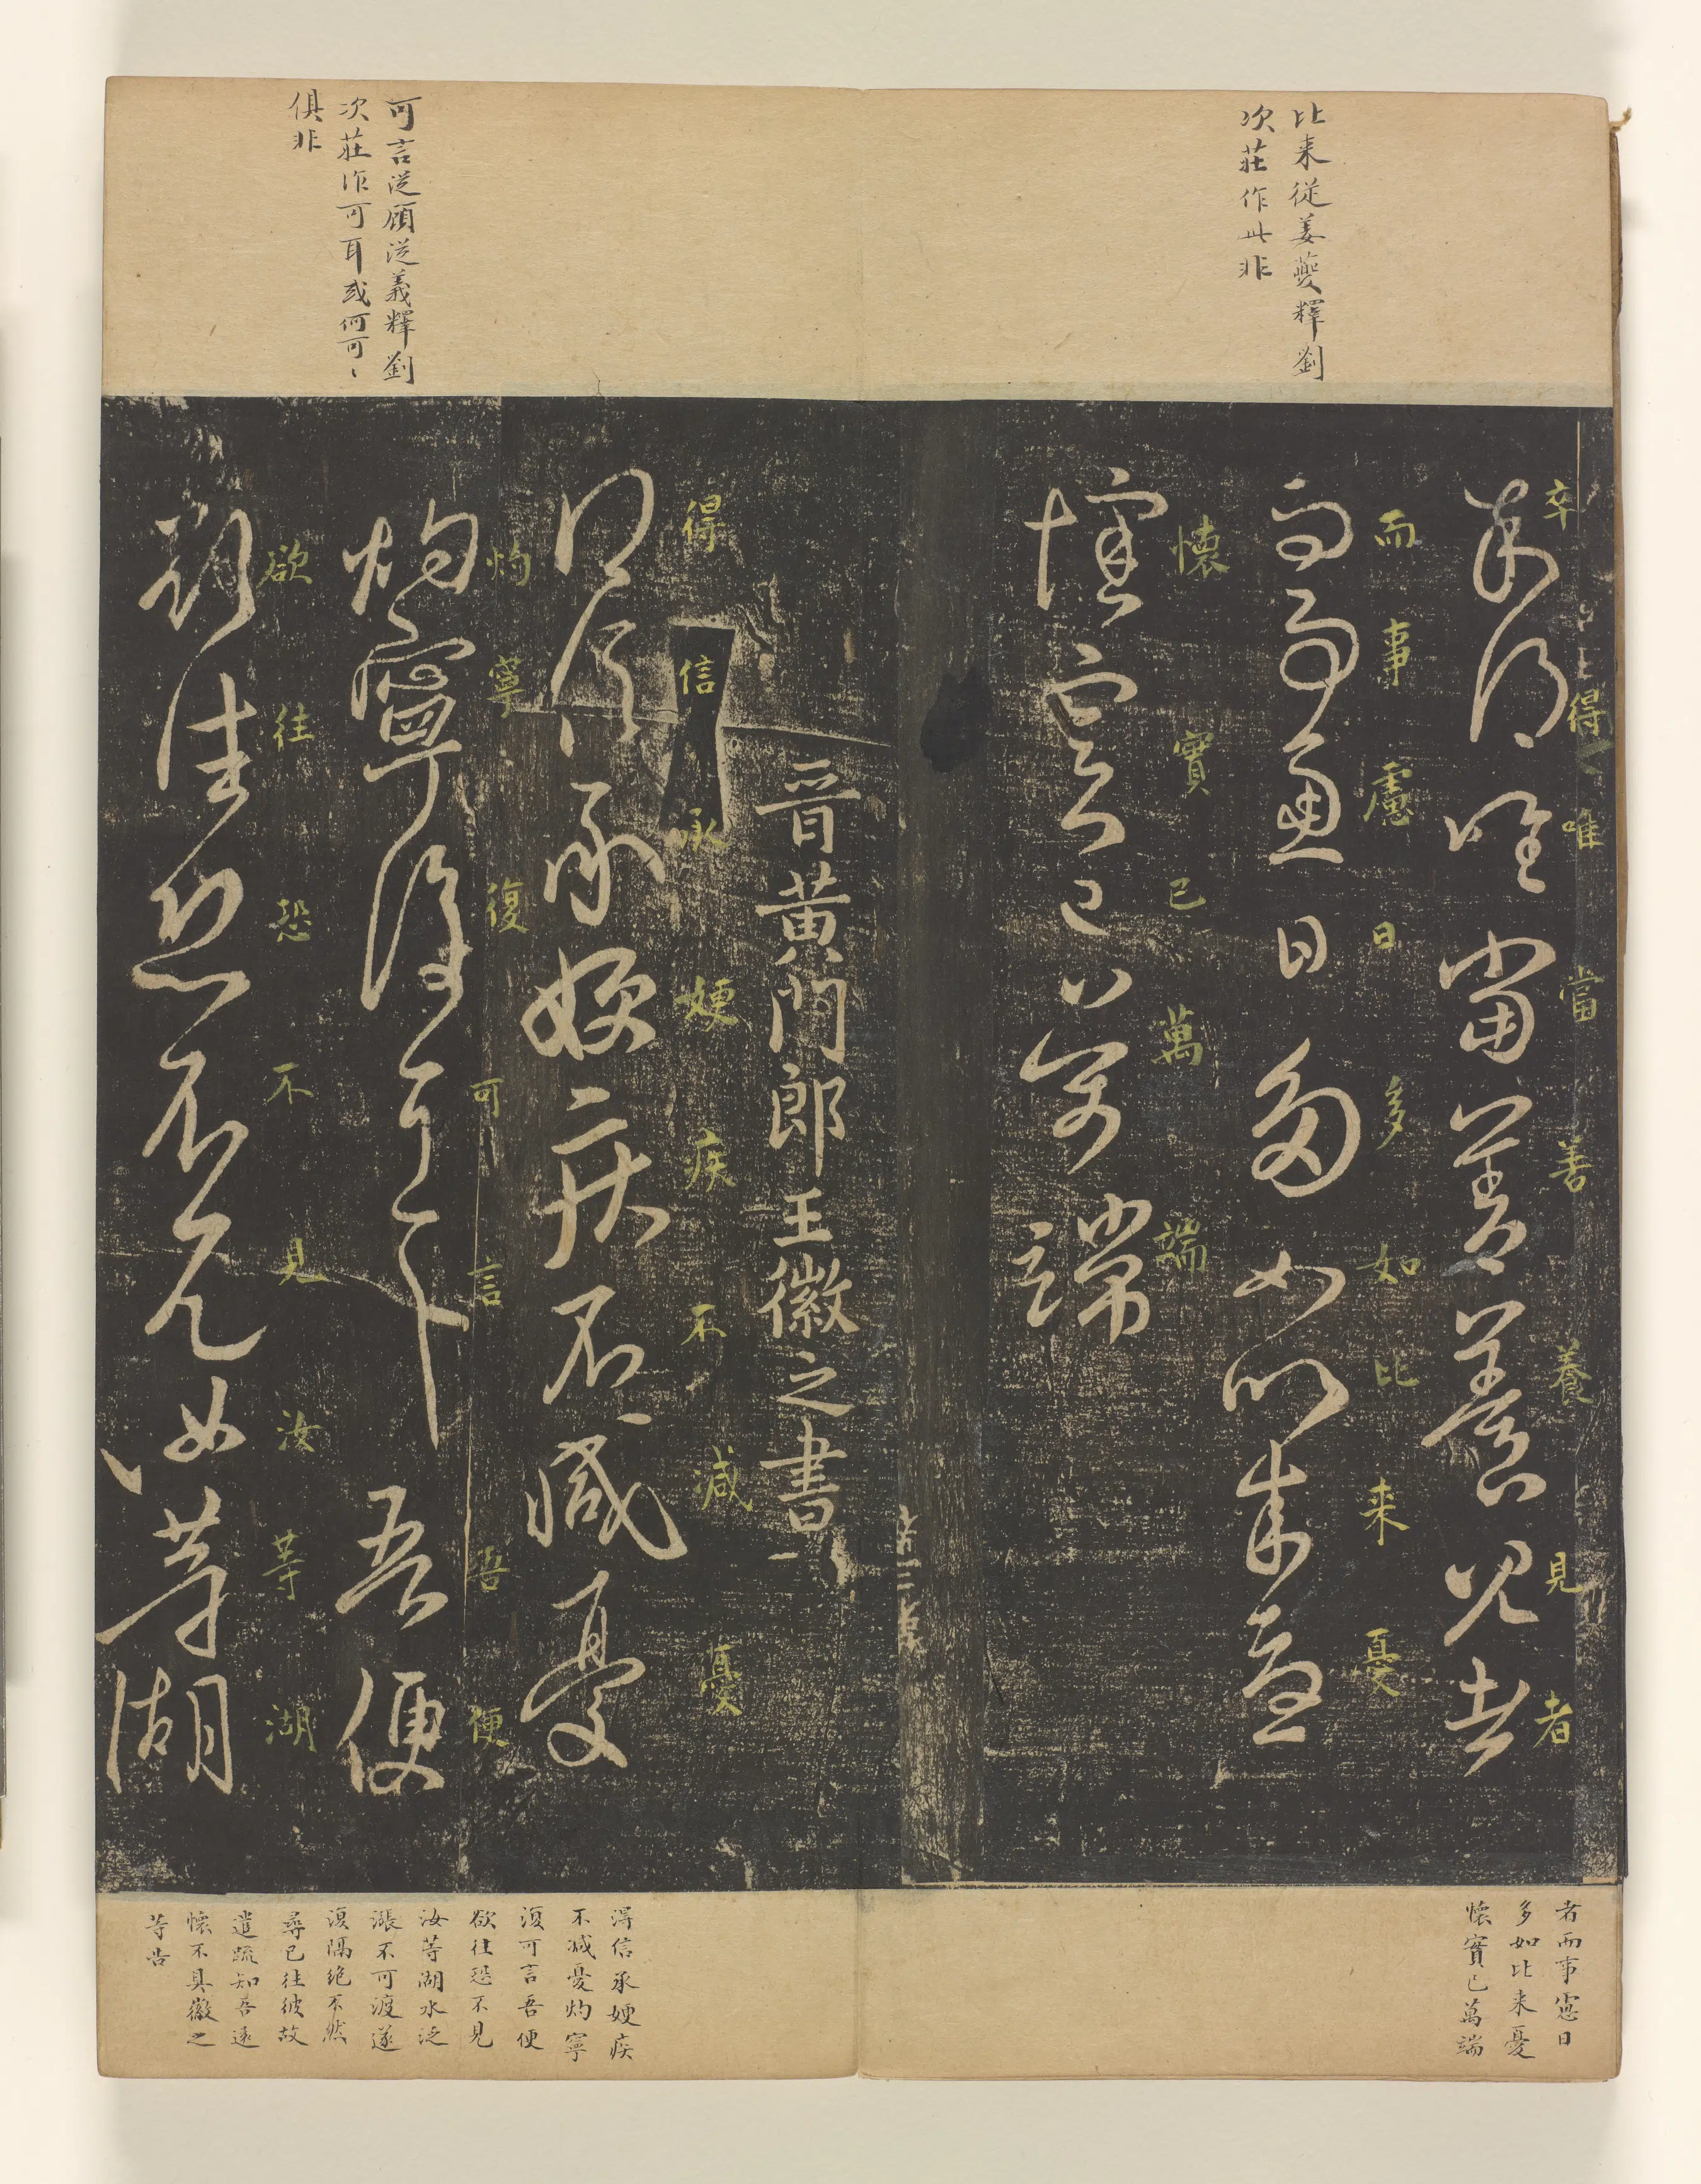 比来從姜夔釋劉
次莊作此非
卒得唯當善養見者
卒得唯當善養見者
而事慮日多如比来憂
而事慮日多如比来憂
懷實已萬端
懷實已萬端
者而事慮日
多如比来憂
懷實已萬端
可言從顧從義釋劉
次莊作可耳或何可、
俱非
晉黃門郎王徽之書
得信承嫂疾不減憂
得信承嫂疾不減憂
灼寧復可言吾便
灼寧復可言吾便
欲往恐不見汝等湖
欲往恐不見汝等湖
得信承嫂疾
不減憂灼寧
復可言吾便
欲往恐不見
汝等湖水泛
漲不可渡遂
復隔絶不然
尋已往彼故
遣疏知吾遠
懷不具徽之
等告